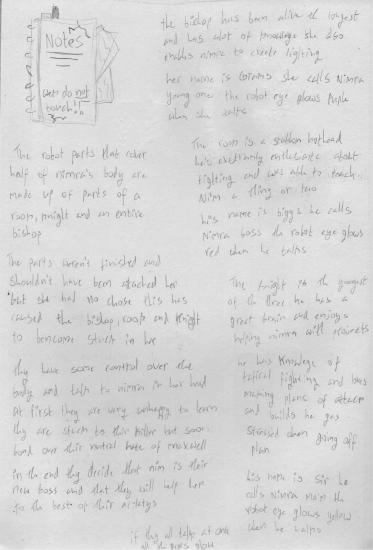 Notes
do not
touch!!
the bishop has been alive the longest
and has alot of knowledge she also
enables nimra to create lighting
her name is she calls Nimra
young one the robot eye glows purple
when she talks
The robot parts that cover
half of nimra's body are
made up of parts of a
rook, knight and an entire
bishop
The parts weren't finished and
shouldn't have been attached her
but she had no chose this has
caused the bishop, rook and knight
to bencome stuck in her
They have some control over the
body and talk to nimra in her head
At first they are very unhappy to learn
thy are stuck to this killer but soon
bond over this hate of maxwell
in the end thy decide that nim is their
new boss and that they will help her
to the best of their
The rook is a stubbon hothead
he's exetramly enthusiastic about
fighting and was able to teach
Nim a thing or two
his name is biggs he calls
Nimra boss the robot eye glows
red when he talks
The knight is the youngest
of the three he has a
great brain and enjoys
helping nimra with projects
he has knowlege of
tatical fighting and loves
making plans of attack
and builds he gas
stressed when going off
plan
his name is Sir he
calls Nimra Ma'm the
robot eye glows yellow
when he talks
if thy all talk at once
all the glow